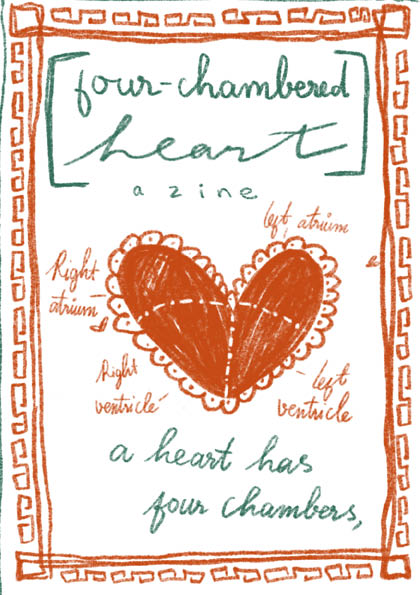 [four-chambered
heart]
a zine
left atrium
Right
atrium
Right
ventricle
left
ventricle
a heart has
four chambers,